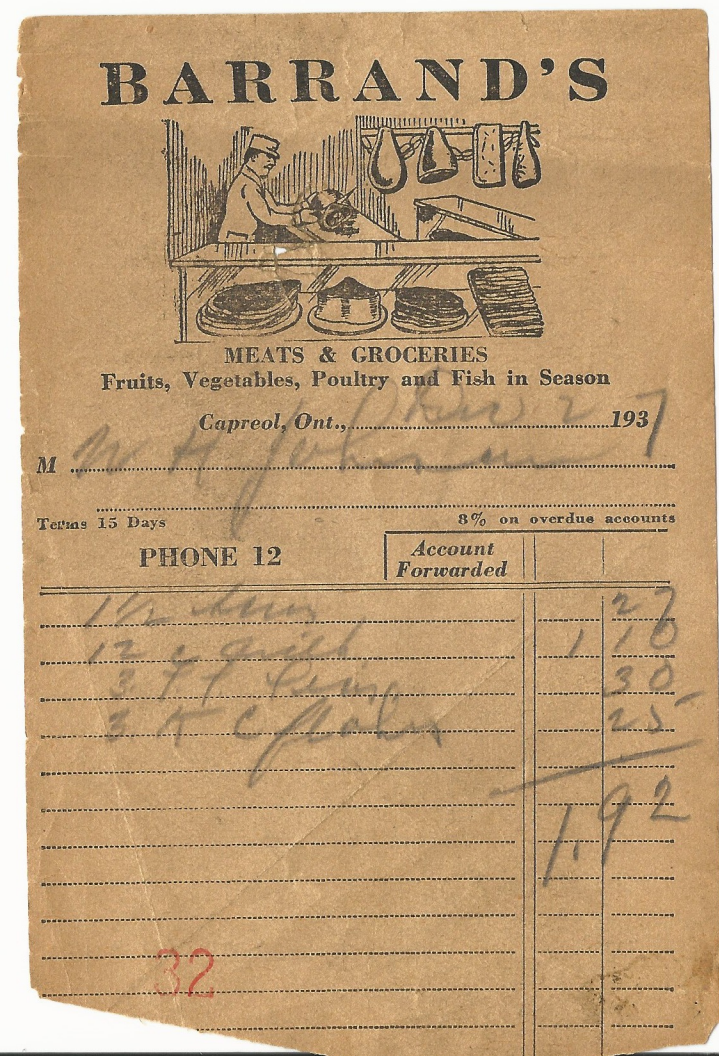 BARRAND'S
MEATS & GROCERIES
Fruits, Vegetables, Poultry and Fish in Season
Capreol, Ont., 2 1937
M W H Johnson
Terms 15 Days 8% on overdue accounts
PHONE 12 Account Forwarded
1 1/2 27
12 1 10
3 30
3 K C 25
1.92
32